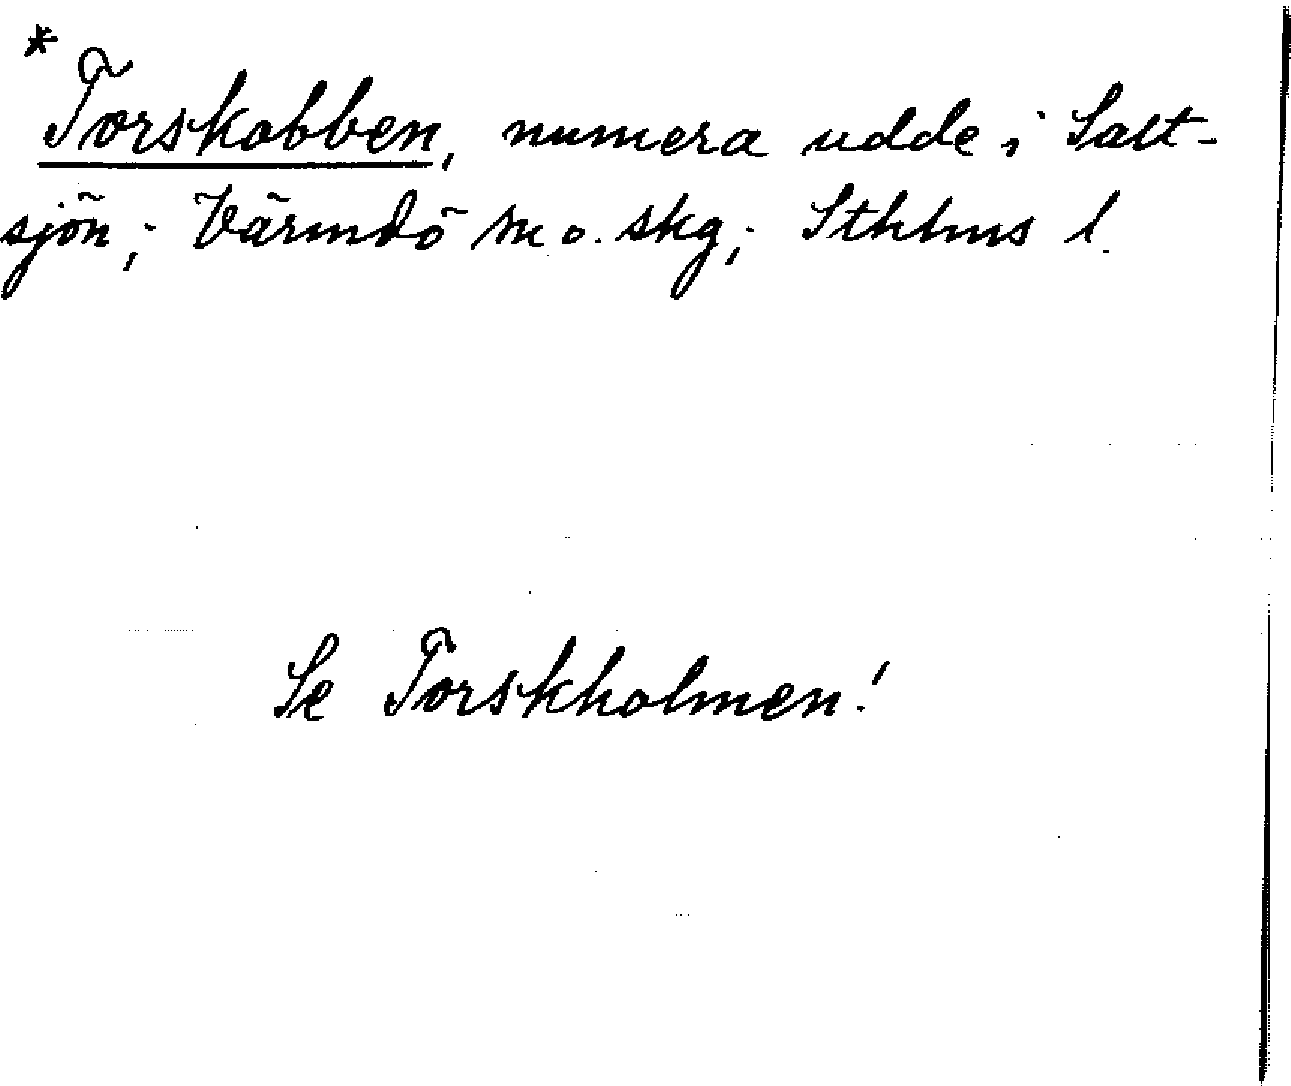 * Torskobben, numera udde i Salt-
sjön; Värmdö sn o. skg; Sthlms l.
Se Torskholmen!